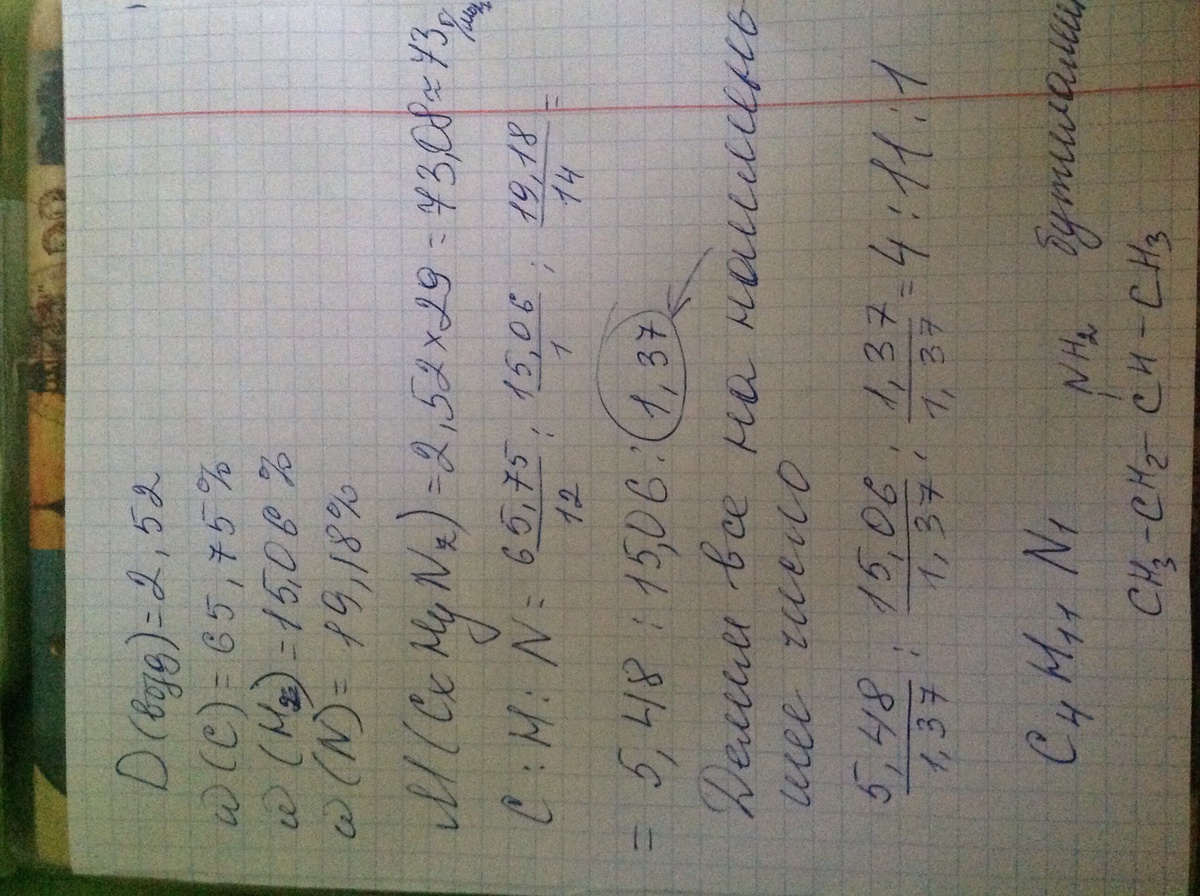 D(возд) = 2,52
ω(C) = 65,75%
ω(H) = 15,06%
ω(N) = 19,18%
M(CxHyNz) = 2,52 × 29 = 73,08 ≈ 73 г/моль
C : H : N = 65,75/12 : 15,06/1 : 19,18/14 =
= 5,48 : 15,06 : 1,37
Делим все на наимень
шее число
5,48/1,37 : 15,06/1,37 : 1,37/1,37 = 4 : 11 : 1
C4 H11 N1 бутиламин
NH2
CH3 - CH2 - CH - CH3